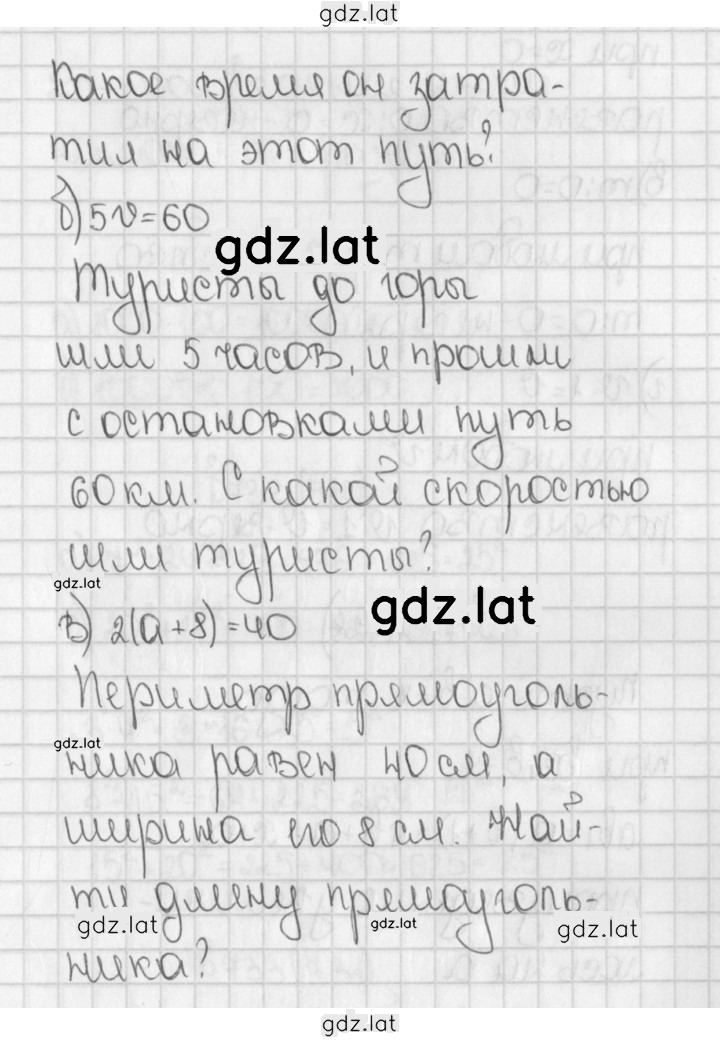 gdz.lat
Какое время он затра-
тил на этот путь?
б) 5v=60
gdz.lat
Туристы до горы
шли 5 часов, и прошли
с остановками путь
60 км. С какой скоростью
шли туристы?
gdz.lat
в) 2(a+8)=40
gdz.lat
Периметр прямоуголь-
gdz.lat
ника равен 40 см, а
ширина его 8 см. Най-
ти длину прямоуголь-
gdz.lat gdz.lat gdz.lat
ника?
gdz.lat